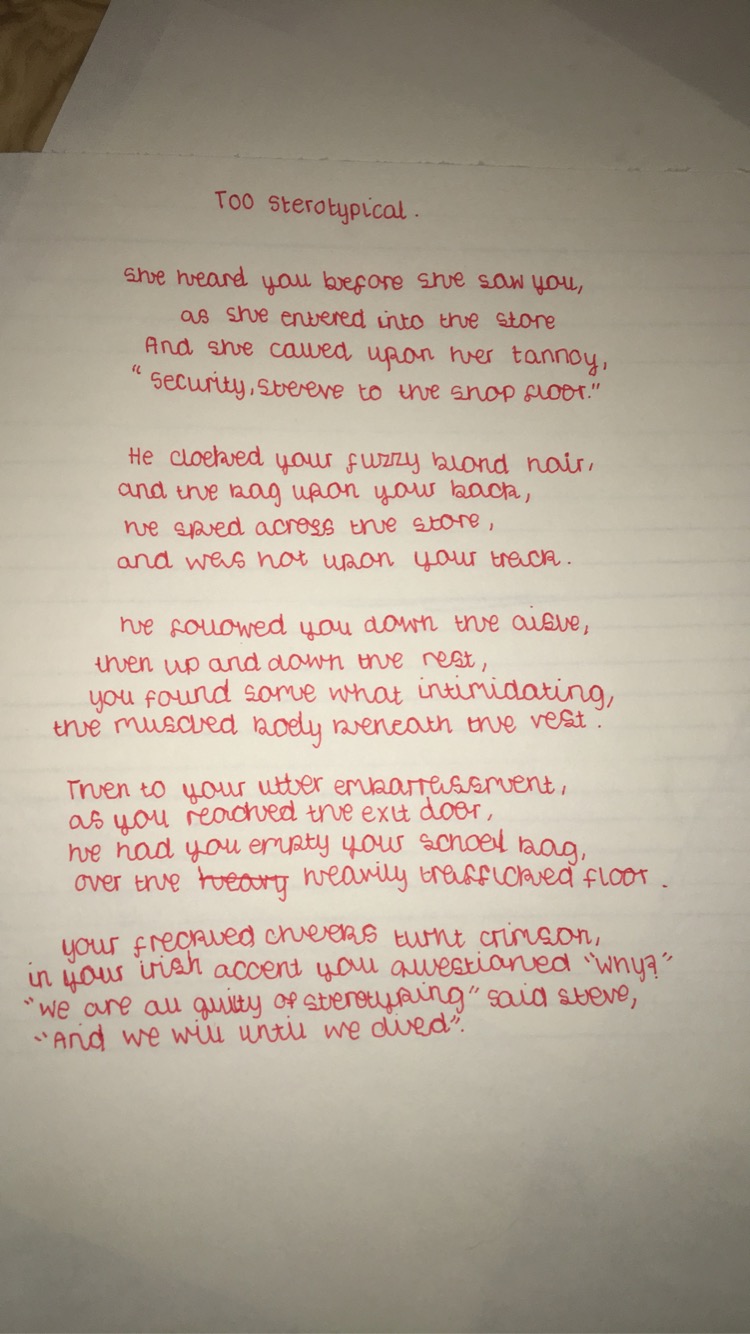 Too sterotypical.
she heard you before she saw you,
as she entered into the store
And she called upon her tannoy,
"security, steve to the shop floor."
He clocked your fuzzy blond hair,
and the bag upon your back,
he sped across the store,
and was hot upon your track.
he followed you down the aisle,
then up and down the rest,
you found some what intimidating,
the muscled body beneath the vest.
Then to your utter embarressment,
as you reached the exit door,
he had you empty your school bag,
over the heavy heavily trafficked floor.
your freckled cheeks turnt crimson,
in your irish accent you questioned "why?"
"we are all guilty of sterotyping" said steve,
"And we will until we died".